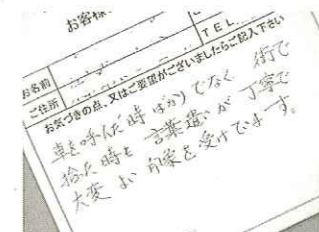 お客様
お名前
ご住所
TEL
お気づきの点、又はご要望がございましたらご記入下さい
車を呼んだ時ばかりでなく 街で
拾た時も 言葉遣いが 丁寧で
大変 よい 印象を受けています。